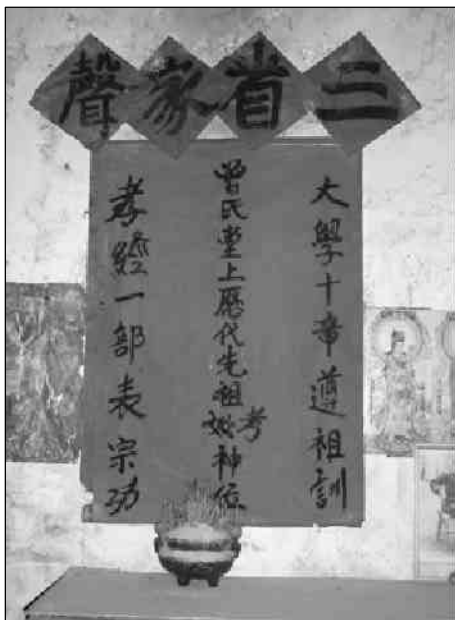 三省家聲
大學十章遵祖訓
曾氏堂上歷代先祖考妣神位
孝經一部表宗功